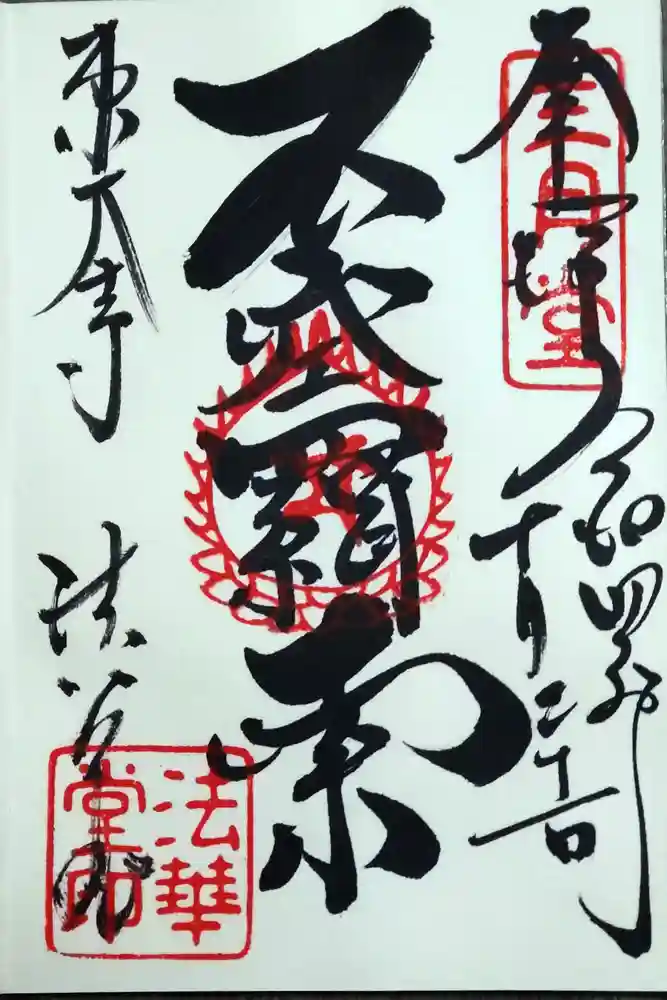 奉拝
三月堂
令和四年
十月二十一日
不空羂索
東大寺 法華堂
法華堂印